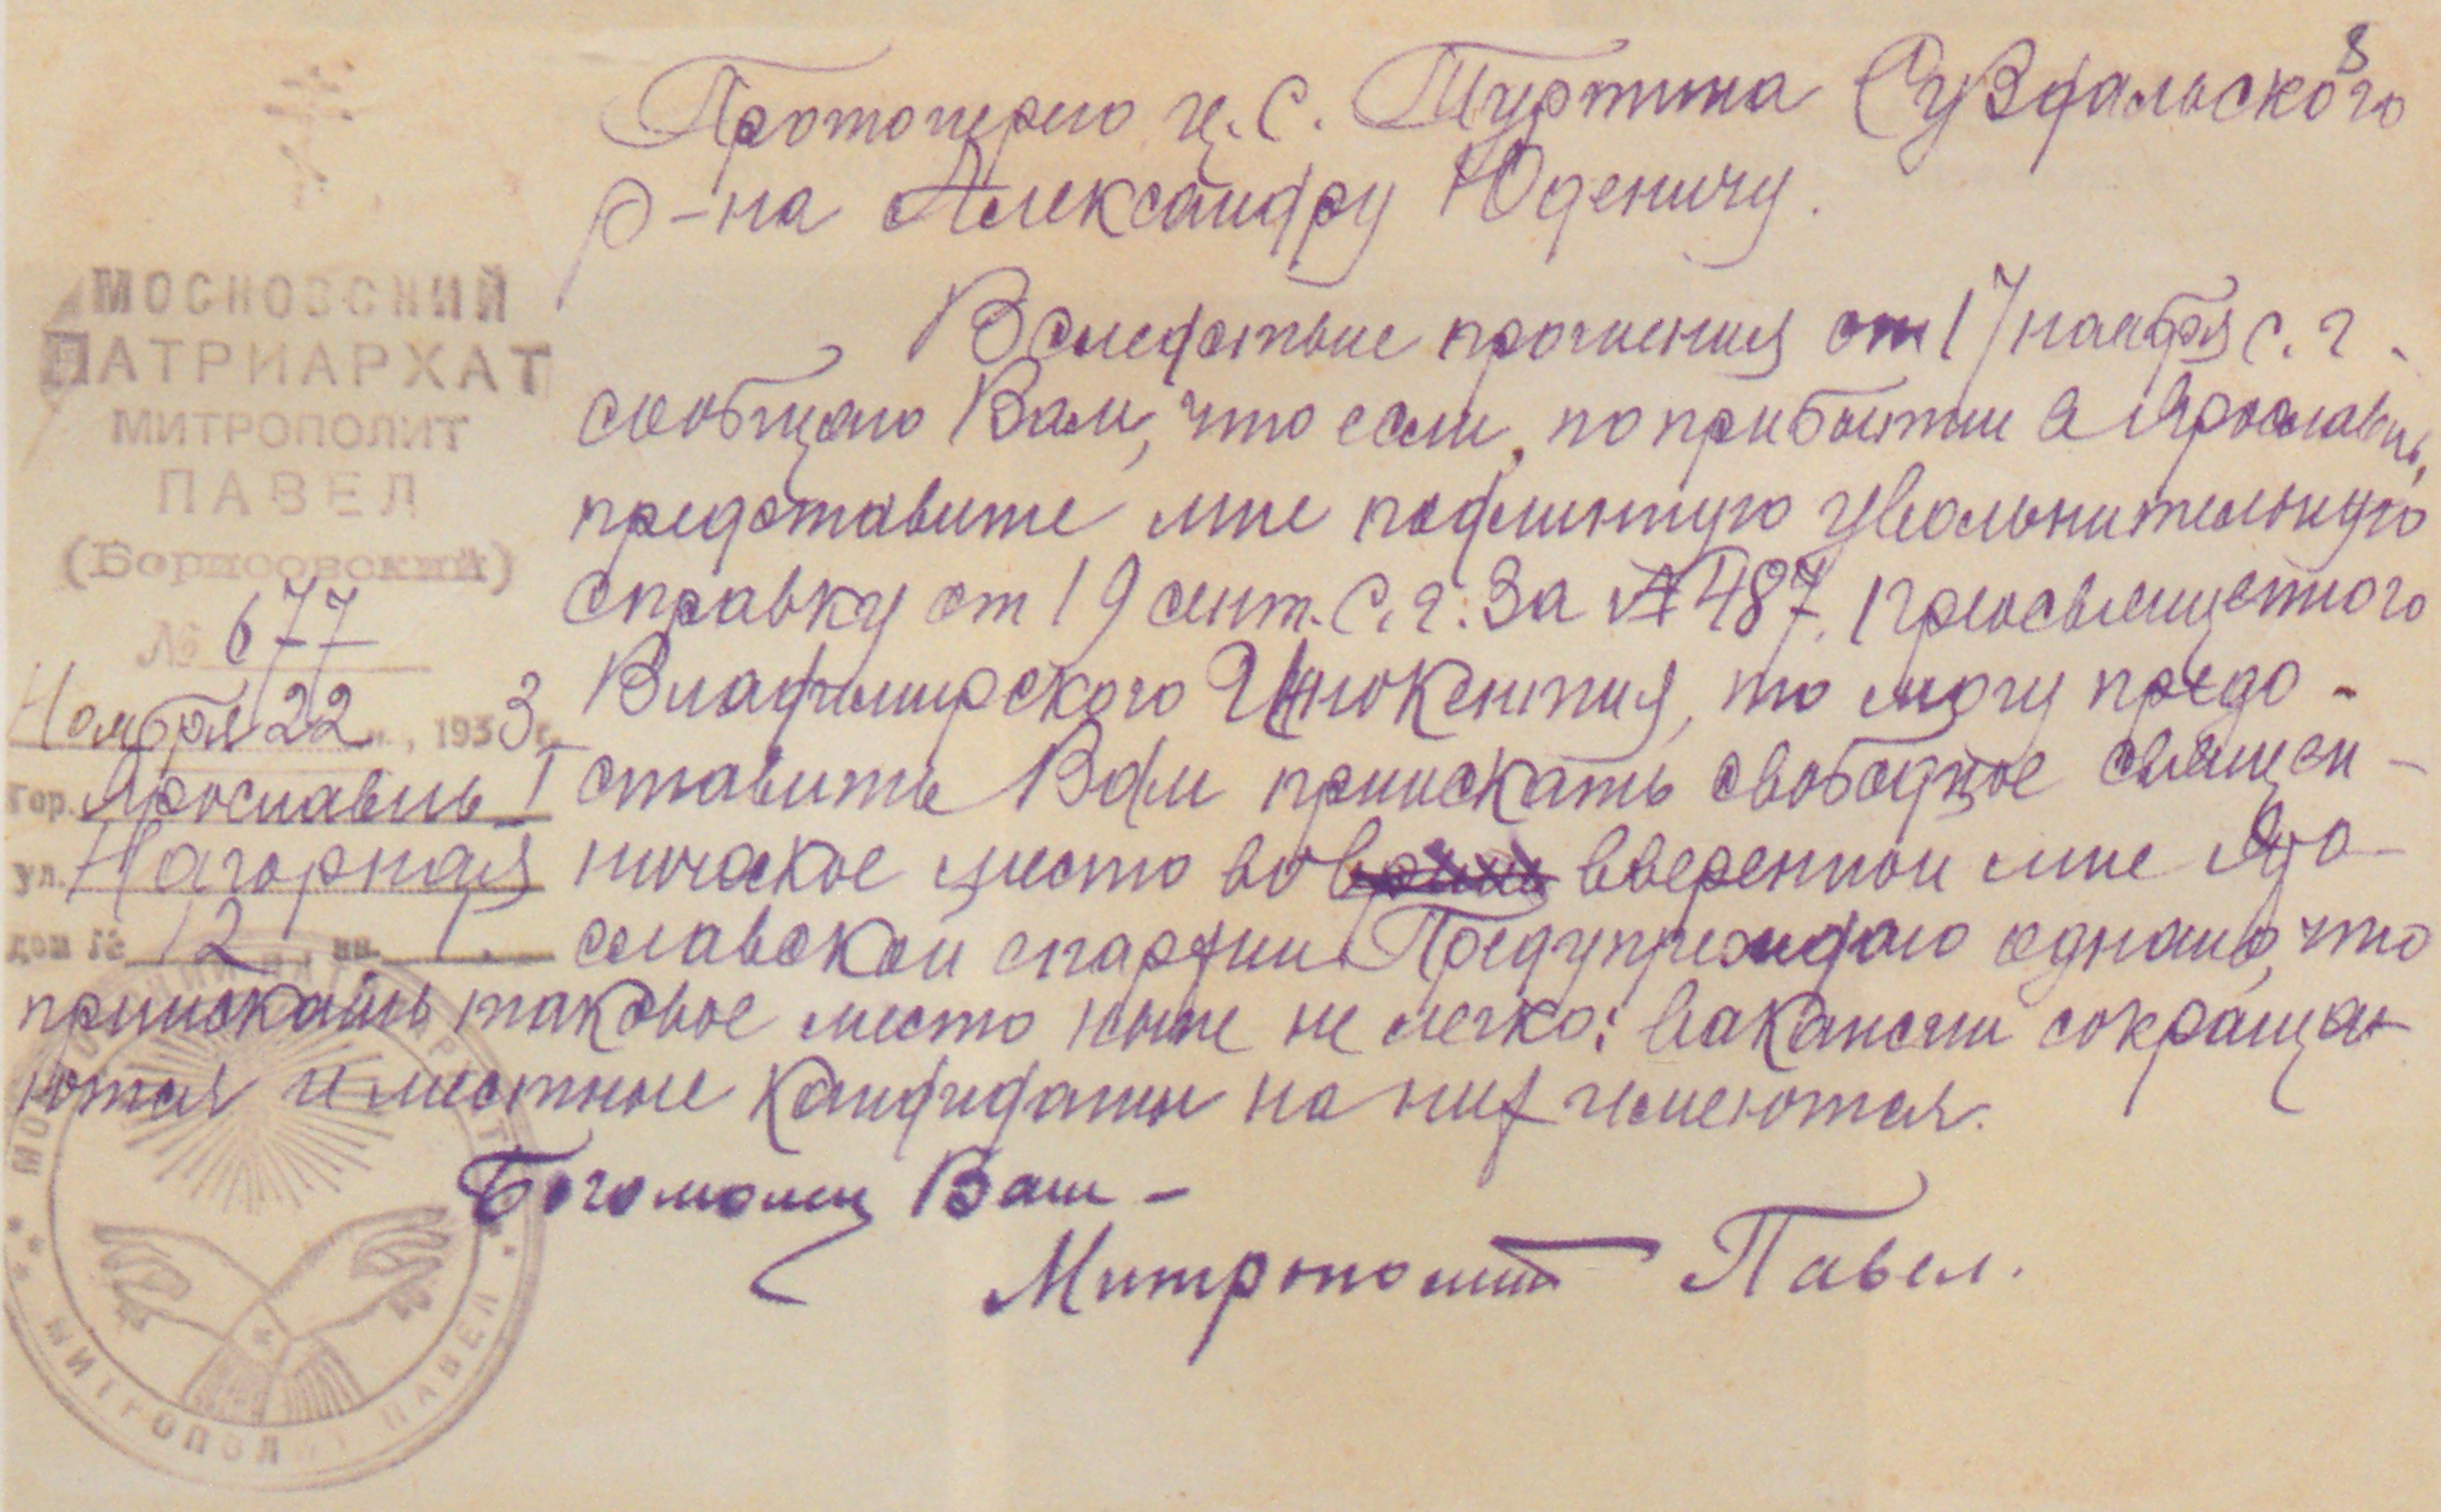 8
Протоиерею ц. с. Туртина Суздальского
р-на Александру Юденичу.
МОСКОВСКИЙ
ПАТРИАРХАТ
МИТРОПОЛИТ
ПАВЕЛ
(Борисовский)
№ 677
Ноября 22 , 1933 г.
Гор. Ярославль I
ул. Нагорная
дом № 12 кв. 1.
Вследствие прошения от 17 ноября с. г.
сообщаю Вам, что если, по прибытии в Ярославль,
представите мне подлинную увольнительную
справку от 19 сент. с. г. за № 487, Преосвященного
Владимирского Иннокентия, то могу предо-
ставить Вам приискать свободное священ-
ническое место во вверенной мне Яро-
славской епархии. Предупреждаю однако, что
приискать таковое место ныне не легко: вакансии сокраща-
ются и местные кандидаты на них имеются.
Богомолец Ваш –
Митрополит Павел.
МОСКОВСКИЙ ПАТРИАРХАТ
МИТРОПОЛИТ ПАВЕЛ